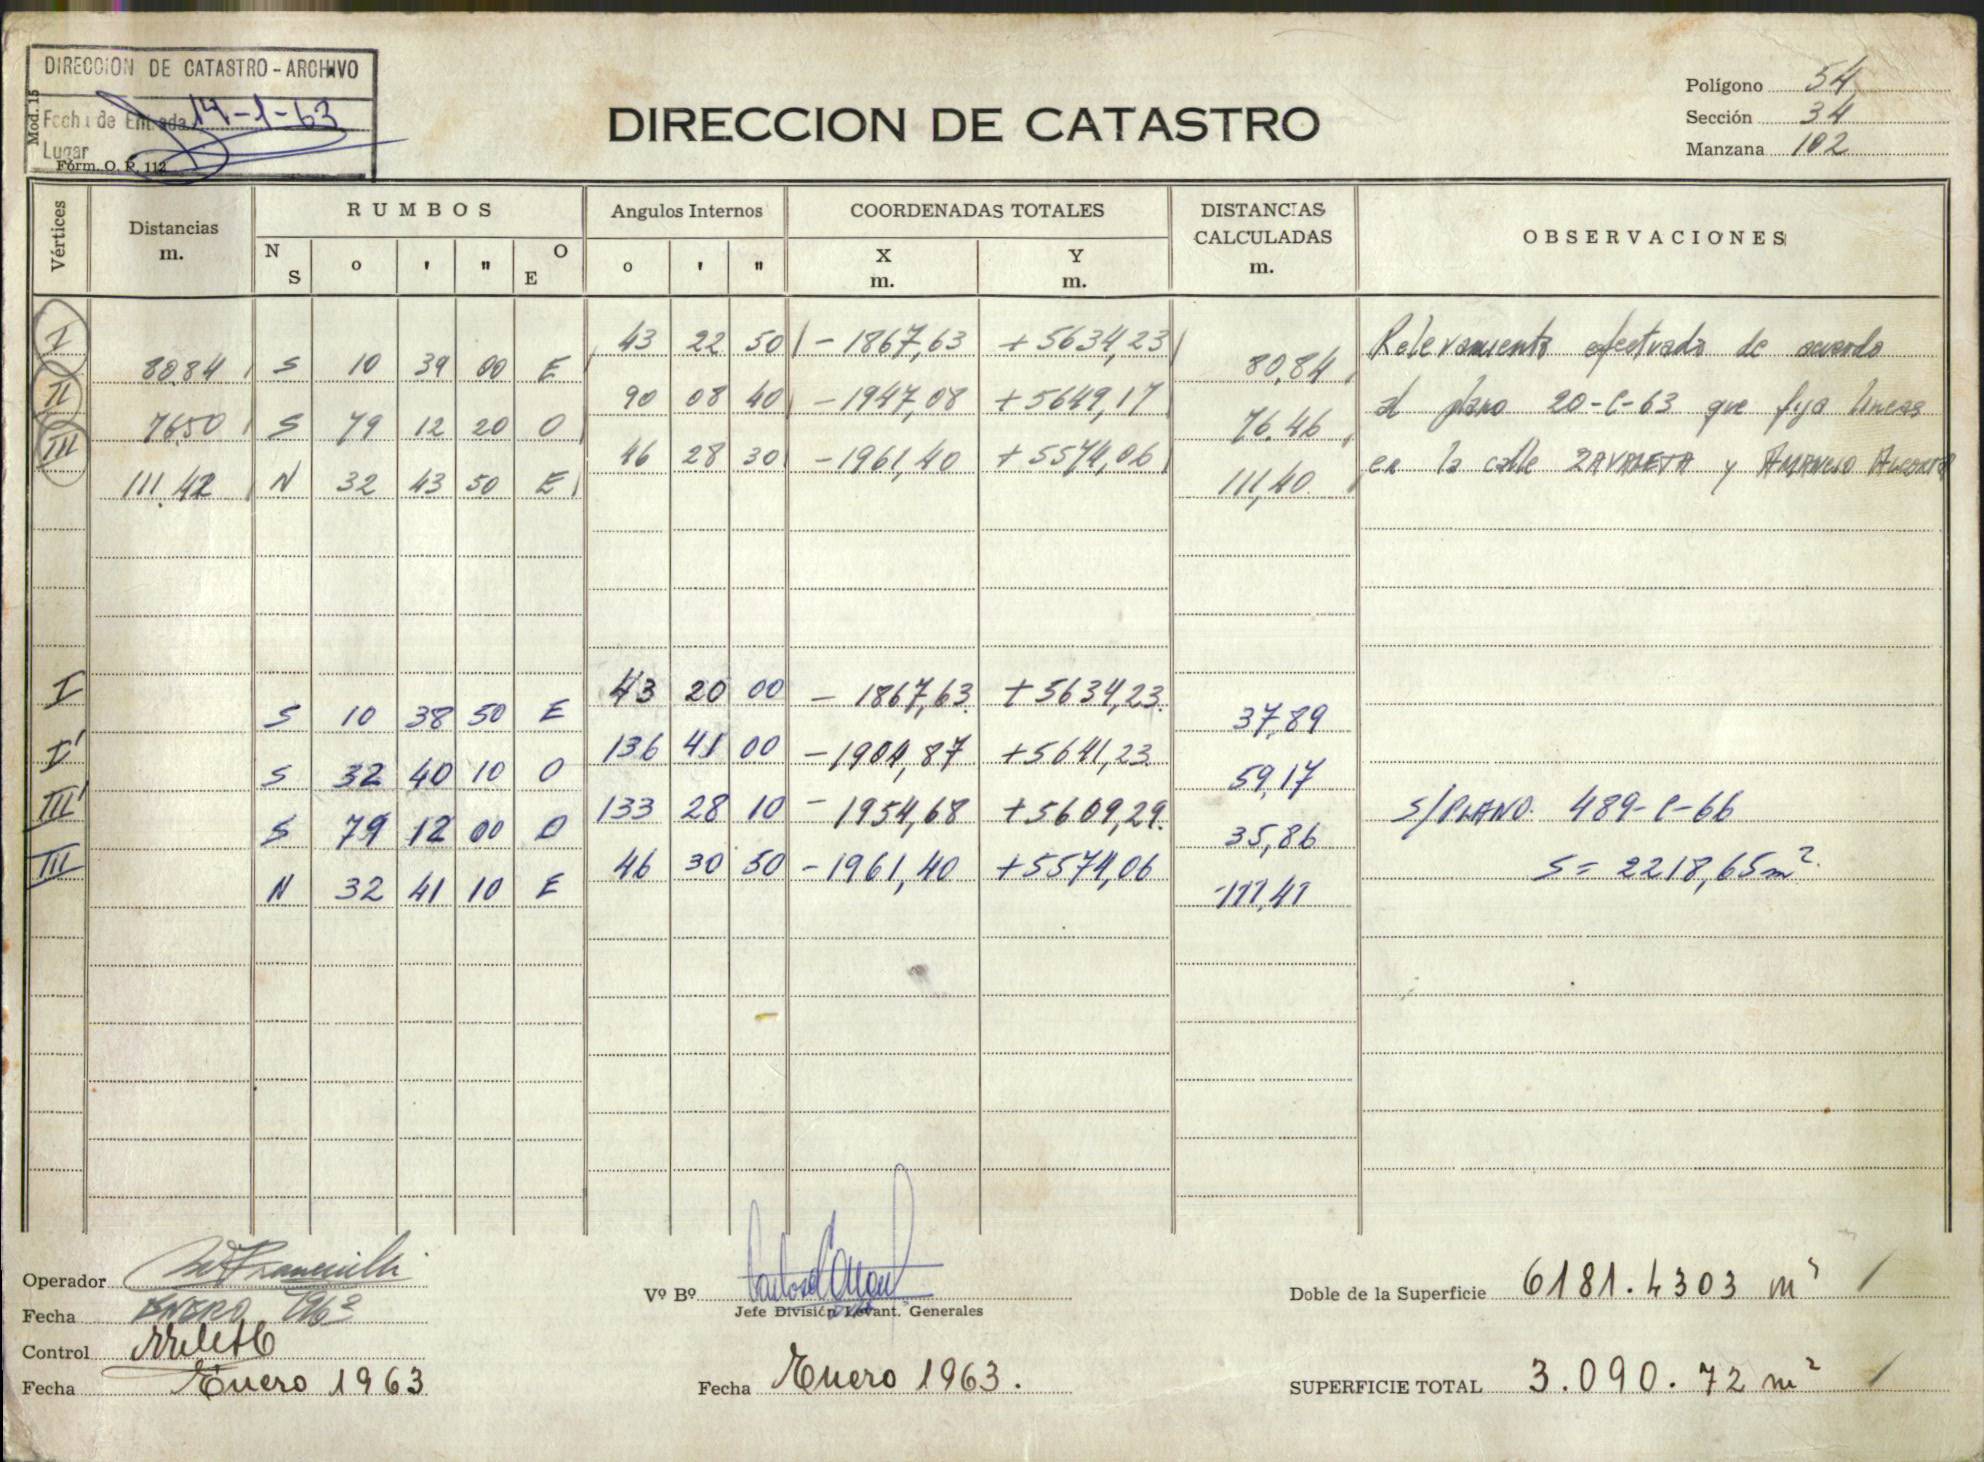 DIRECCION DE CATASTRO - ARCHIVO
Mod. 15
Fecha de Entrada 14-1-63
Lugar
Form. O. P. 112
DIRECCION DE CATASTRO
Polígono 54
Sección 34
Manzana 102
Vértices
Distancias m.
RUMBOS
N S o ' " O E
Angulos Internos
o ' "
COORDENADAS TOTALES
X m. Y m.
DISTANCIAS CALCULADAS m.
OBSERVACIONES
I 43 22 50 - 1867,63 + 5634,23 Relevamiento efectuado de acuerdo
80.84 S 10 39 00 E 80,84
II 90 08 40 - 1947,08 + 5649,17 al plano 20-C-63 que fija lineas
76,50 S 79 12 20 O 76.46
III 46 28 30 - 1961,40 + 5574,06 en la calle ZAVALETA y AMANCIO ALCORTA
111.42 N 32 43 50 E 111,40
I 43 20 00 - 1867,63 + 5634,23
S 10 38 50 E 37,89
I' 136 41 00 - 1904,87 + 5641,23
S 32 40 10 O 59,17
III' 133 28 10 - 1954,68 + 5609,29 S/PLANO. 489-C-66
S 79 12 00 O 35,86
III 46 30 50 - 1961,40 + 5574,06 S = 2218,65 m².
N 32 41 10 E 111,41
Operador
Fecha ENERO
Control
Fecha Enero 1963
Vº Bº
Jefe División Levant. Generales
Fecha Enero 1963.
Doble de la Superficie 6181.4303 m²
SUPERFICIE TOTAL 3.090.72 m²